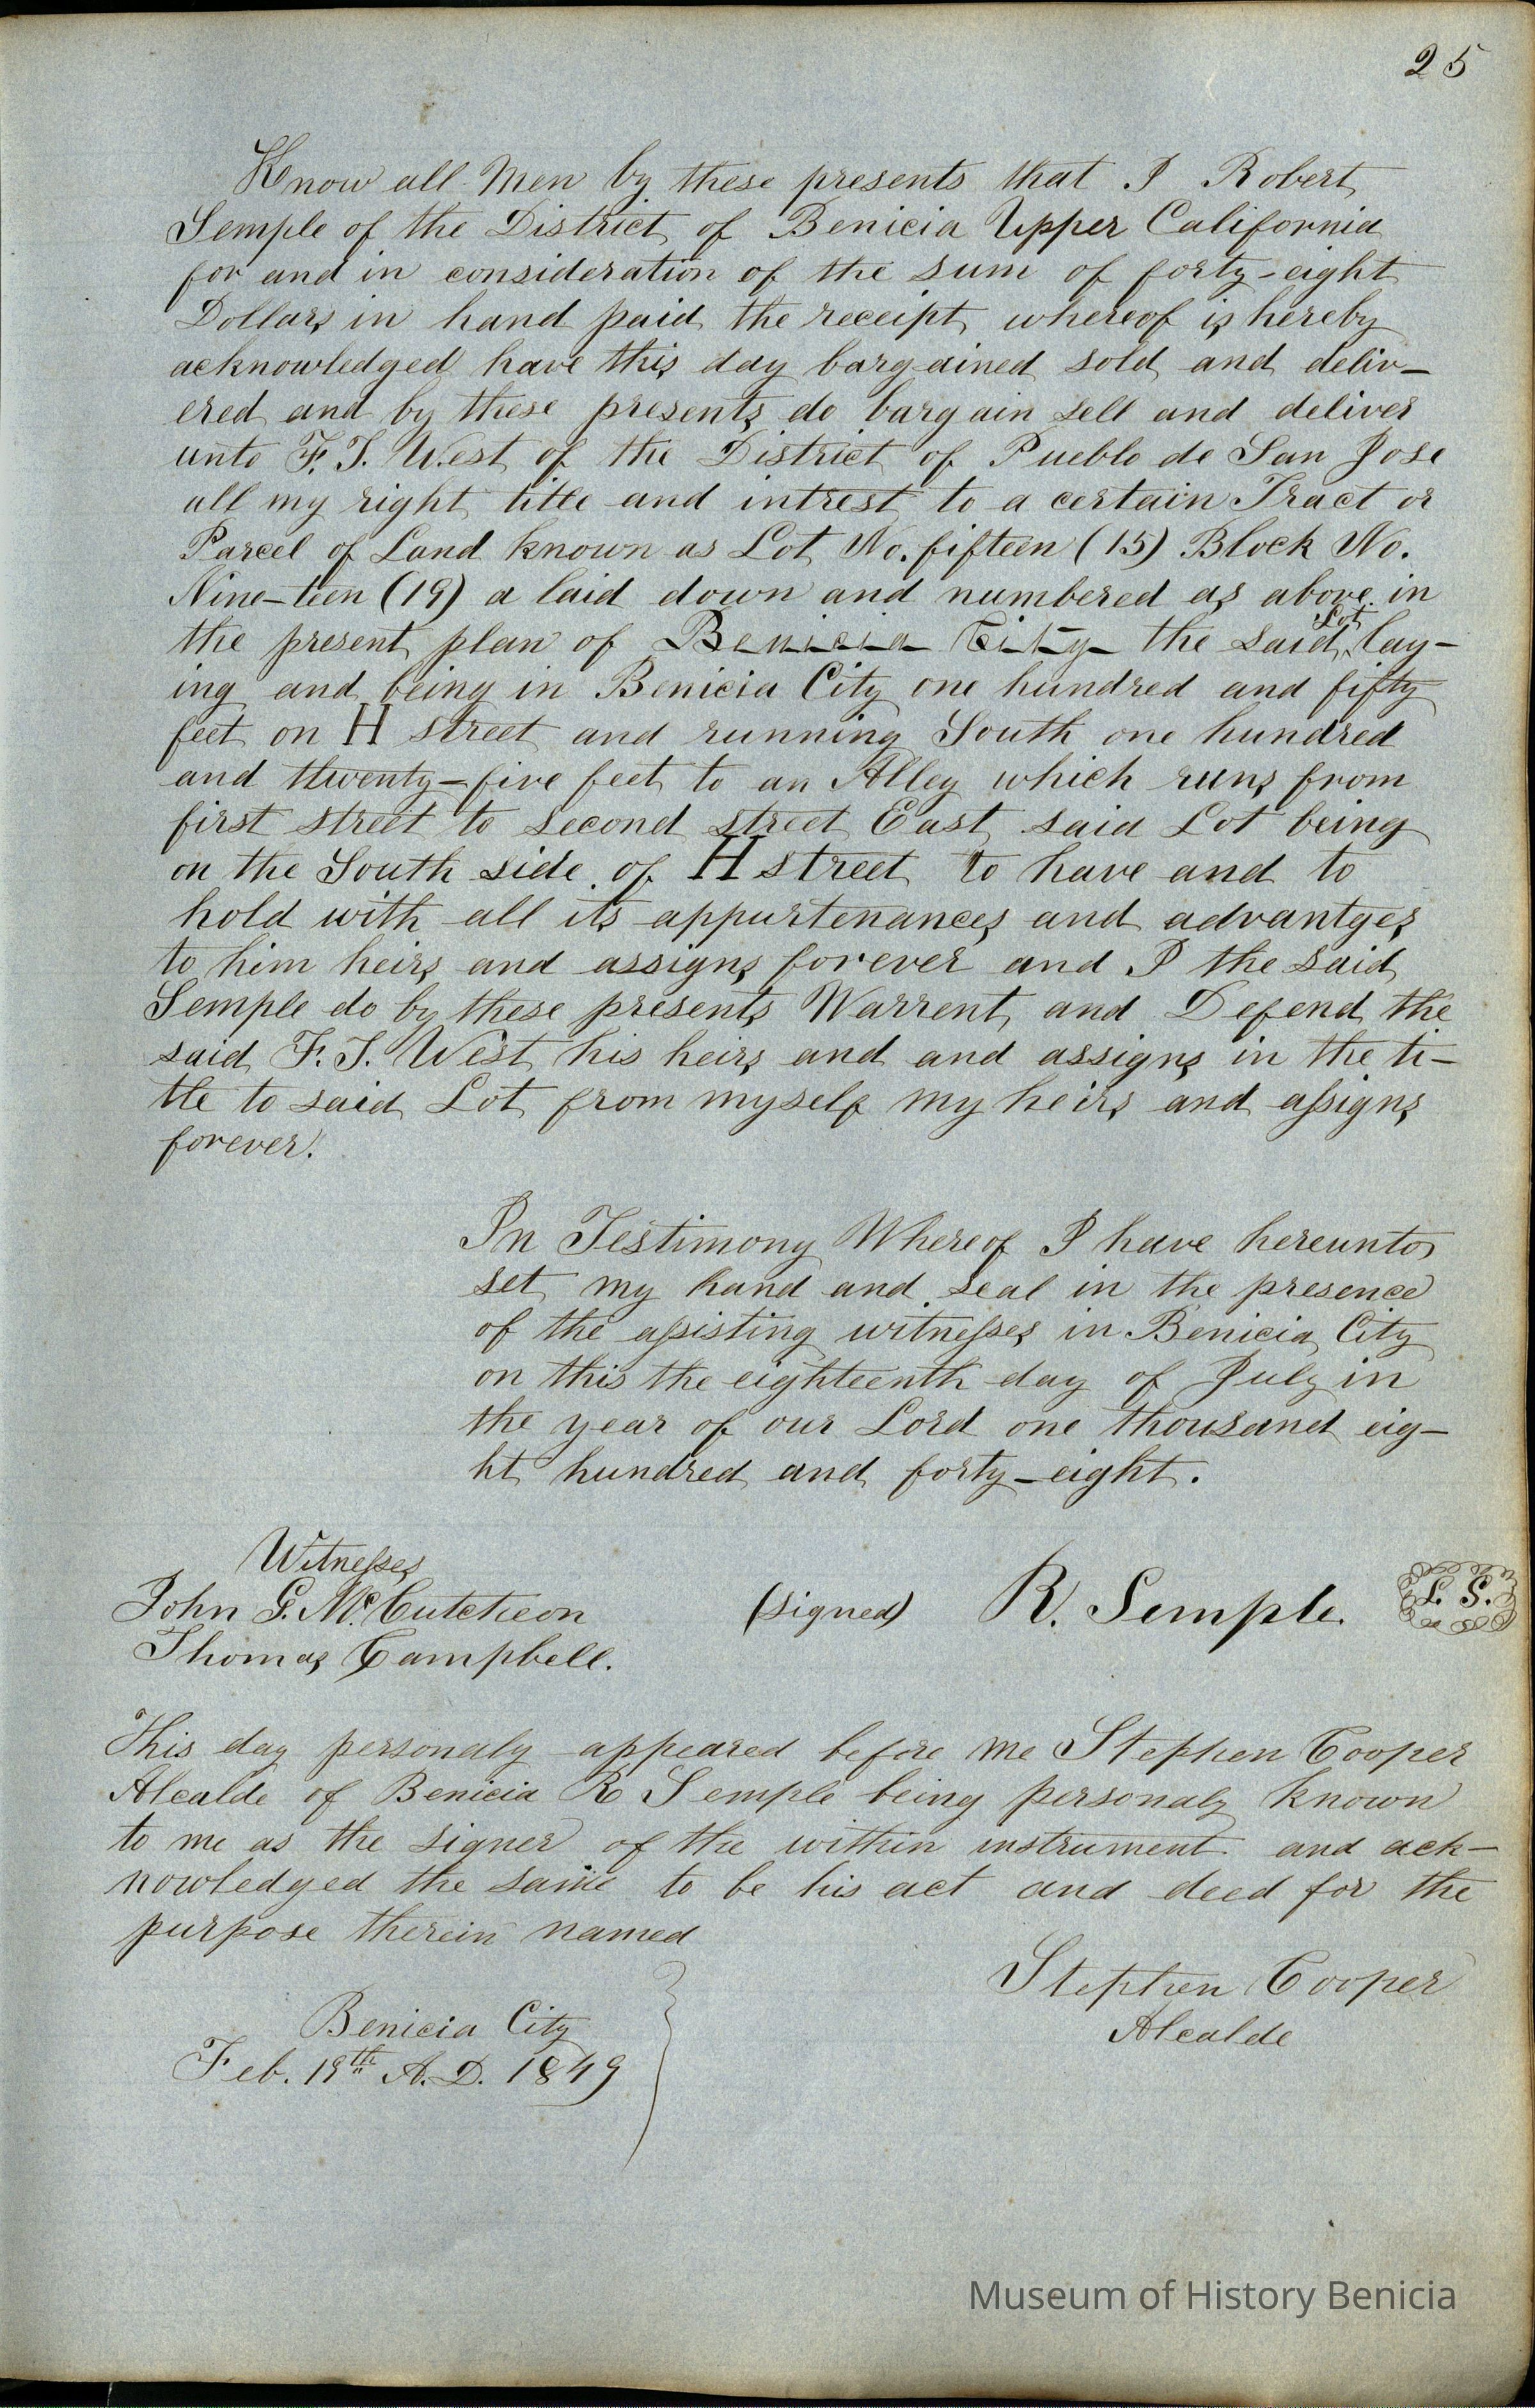 25
Know all Men by these presents that I Robert
Semple of the District of Benicia Upper California
for and in consideration of the sum of forty-eight
Dollars in hand paid the receipt whereof is hereby
acknowledged have this day bargained sold and deliv-
ered and by these presents do bargain sell and deliver
unto F. T. West of the District of Pueblo de San Jose
all my right title and intrest to a certain Tract or
Parcel of Land known as Lot No. fifteen (15) Block No.
Nine-teen (19) a laid down and numbered as above in
the present plan of Benicia City the said Lot lay-
ing and being in Benicia City one hundred and fifty
feet on H street and running South one hundred
and ttwenty-five feet to an Alley which runs from
first street to second street East said Lot being
on the South side of H street to have and to
hold with all its appurtenances and advantges
to him heirs and assigns forever and I the said
Semple do by these presents Warrent and Defend the
said F. T. West his heirs and and assigns in the ti-
tle to said Lot from myself my heirs and assigns
forever.
In Testimony Whereof I have hereunto
set my hand and seal in the presence
of the assisting witnesses in Benicia City
on this the eighteenth day of July in
the year of our Lord one thousand eig-
ht hundred and forty-eight.
Witnesses
John G. McCutcheon
(signed) R. Semple. L. S.
Thomas Campbell.
This day personaly appeared before me Stephen Cooper
Alcalde of Benicia R Semple being personaly known
to me as the signer of the within instrument and ack-
nowledged the same to be his act and deed for the
purpose therein named
Stephen Cooper
Alcalde
Benicia City
Feb. 19th A. D. 1849
Museum of History Benicia